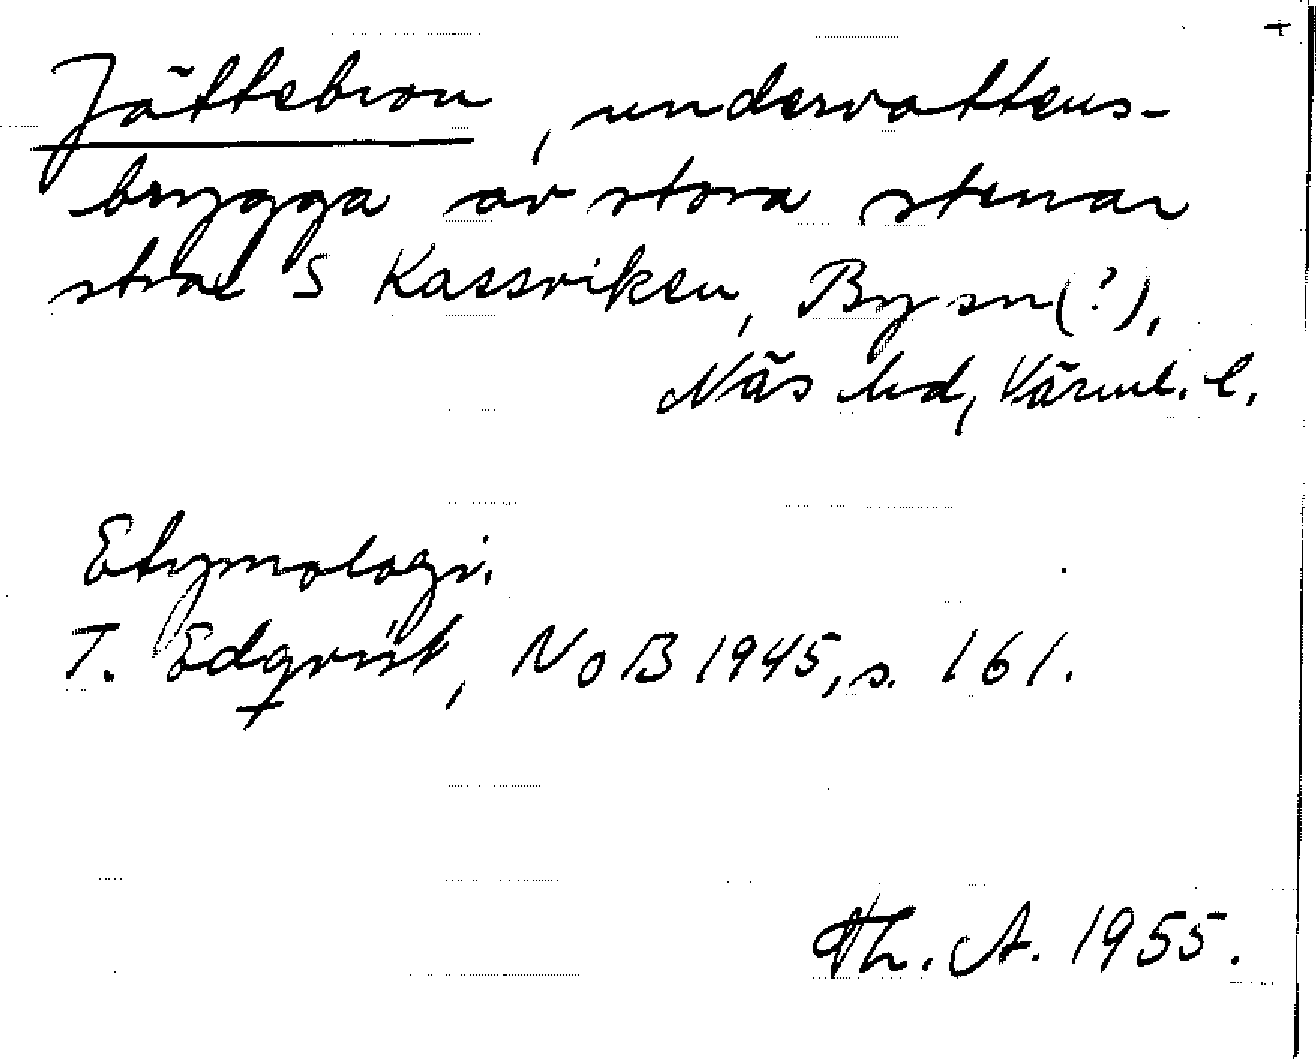 Jättebron, undervattens-
brygga av stora stenar
strax S Kassviken, By sn(?),
Näs hd, Värml. l.
Etymologi.
T. Edqvist, NoB 1945, s. 161.
Th. A. 1955.